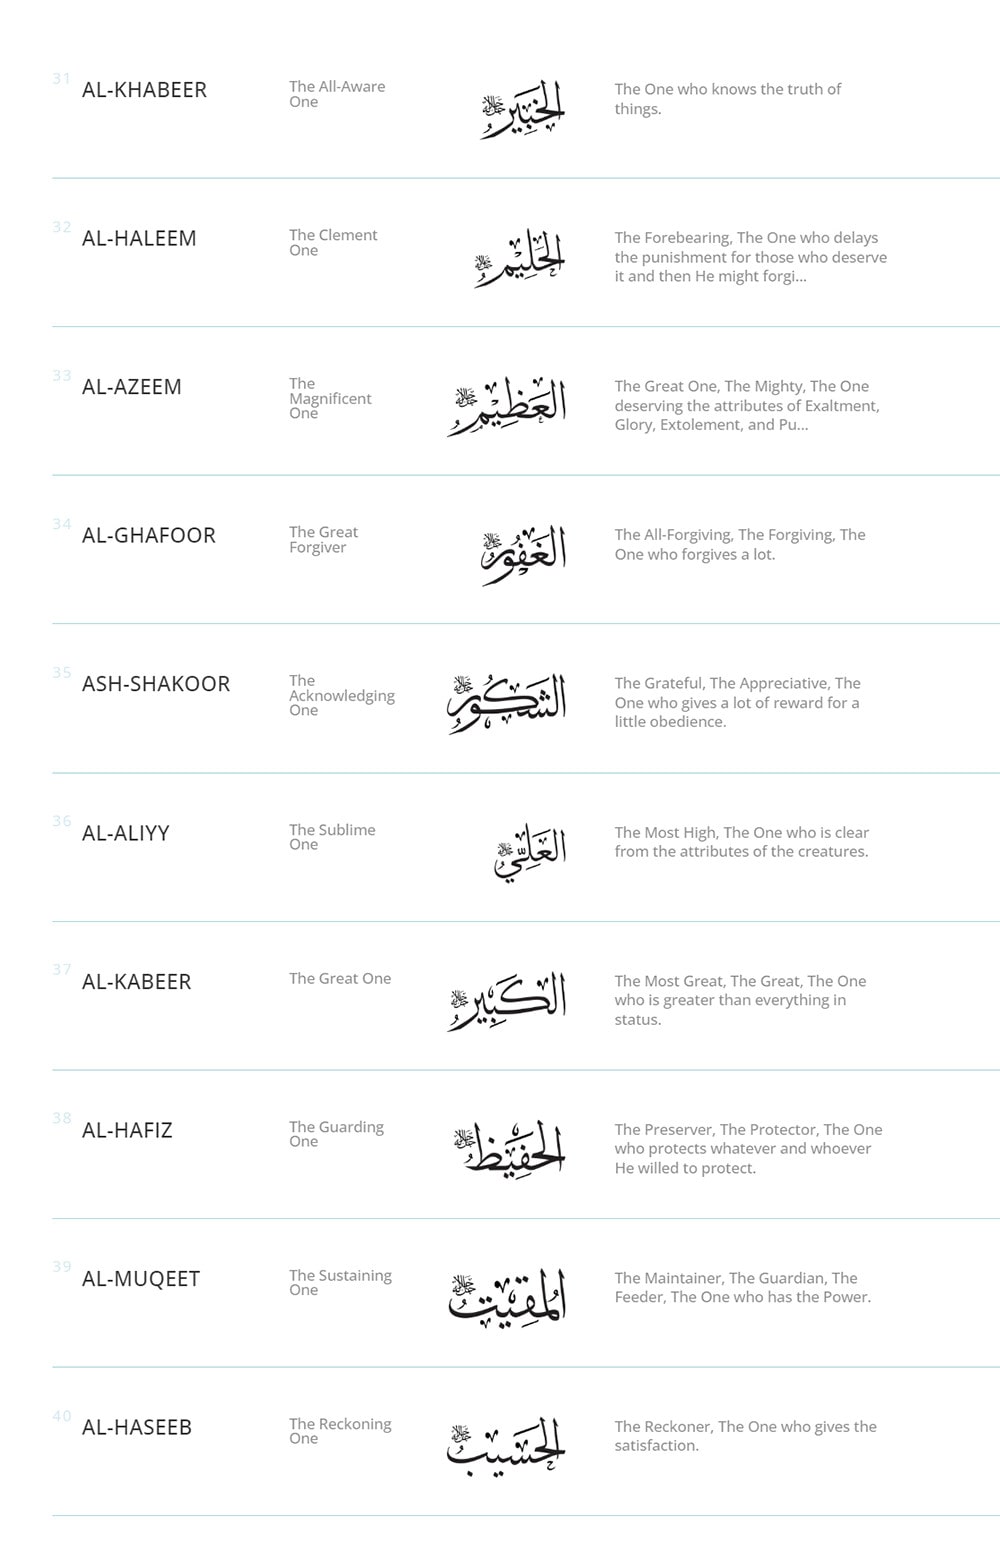 31
AL-KHABEER
The All-Aware
One
الخَبِيْر جل جلاله
The One who knows the truth of
things.
32
AL-HALEEM
The Clement
One
الحَلِيْم جل جلاله
The Forebearing, The One who delays
the punishment for those who deserve
it and then He might forgi...
33
AL-AZEEM
The
Magnificent
One
العَظِيْم جل جلاله
The Great One, The Mighty, The One
deserving the attributes of Exaltment,
Glory, Extolement, and Pu...
34
AL-GHAFOOR
The Great
Forgiver
الغَفُور جل جلاله
The All-Forgiving, The Forgiving, The
One who forgives a lot.
35
ASH-SHAKOOR
The
Acknowledging
One
الشَكُور جل جلاله
The Grateful, The Appreciative, The
One who gives a lot of reward for a
little obedience.
36
AL-ALIYY
The Sublime
One
العَلِيّ جل جلاله
The Most High, The One who is clear
from the attributes of the creatures.
37
AL-KABEER
The Great One
الكَبِيْر جل جلاله
The Most Great, The Great, The One
who is greater than everything in
status.
38
AL-HAFIZ
The Guarding
One
الحَفِيْظ جل جلاله
The Preserver, The Protector, The One
who protects whatever and whoever
He willed to protect.
39
AL-MUQEET
The Sustaining
One
المُقِيْت جل جلاله
The Maintainer, The Guardian, The
Feeder, The One who has the Power.
40
AL-HASEEB
The Reckoning
One
الحَسِيْب جل جلاله
The Reckoner, The One who gives the
satisfaction.